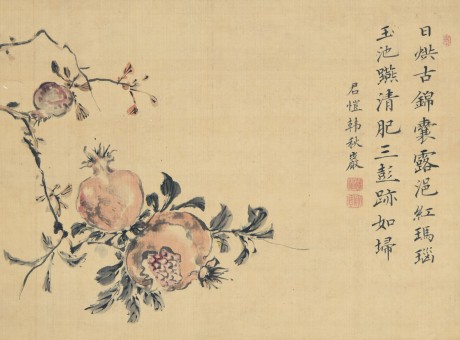 日烘古錦囊露浥紅瑪瑙
玉池嚥清肥三彭跡如埽
君愷韩秋巖